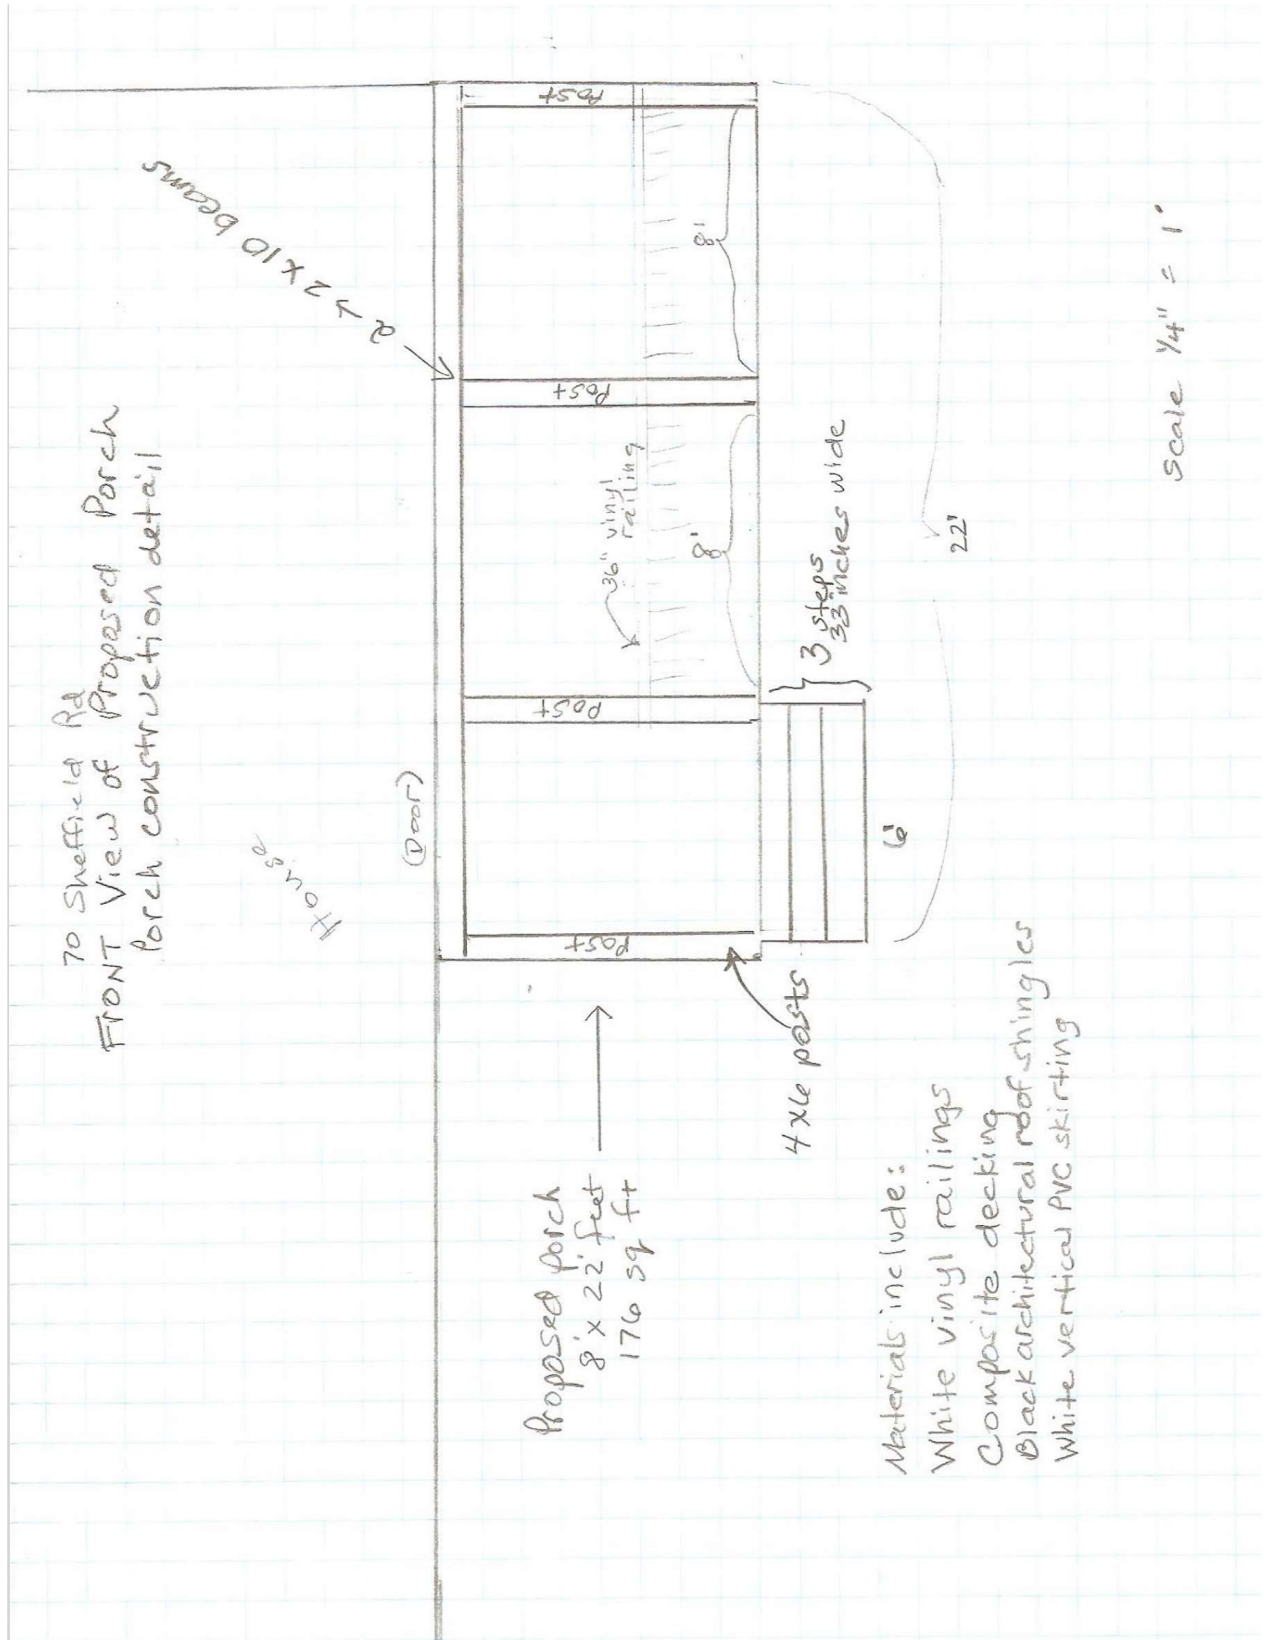 70 Sheffield Rd
FRONT View of Proposed Porch
Porch construction detail
House
(Door)
2 → 2 x 10 beams
Post
Post
Post
Post
36" vinyl
railing
8'
8'
3 steps
33 inches wide
6'
22'
Proposed porch
8' x 22' feet
176 sq ft
4 x 6 posts
Materials include:
White vinyl railings
Composite decking
Black architectural roof shingles
White vertical PVC skirting
Scale 1/4" = 1'